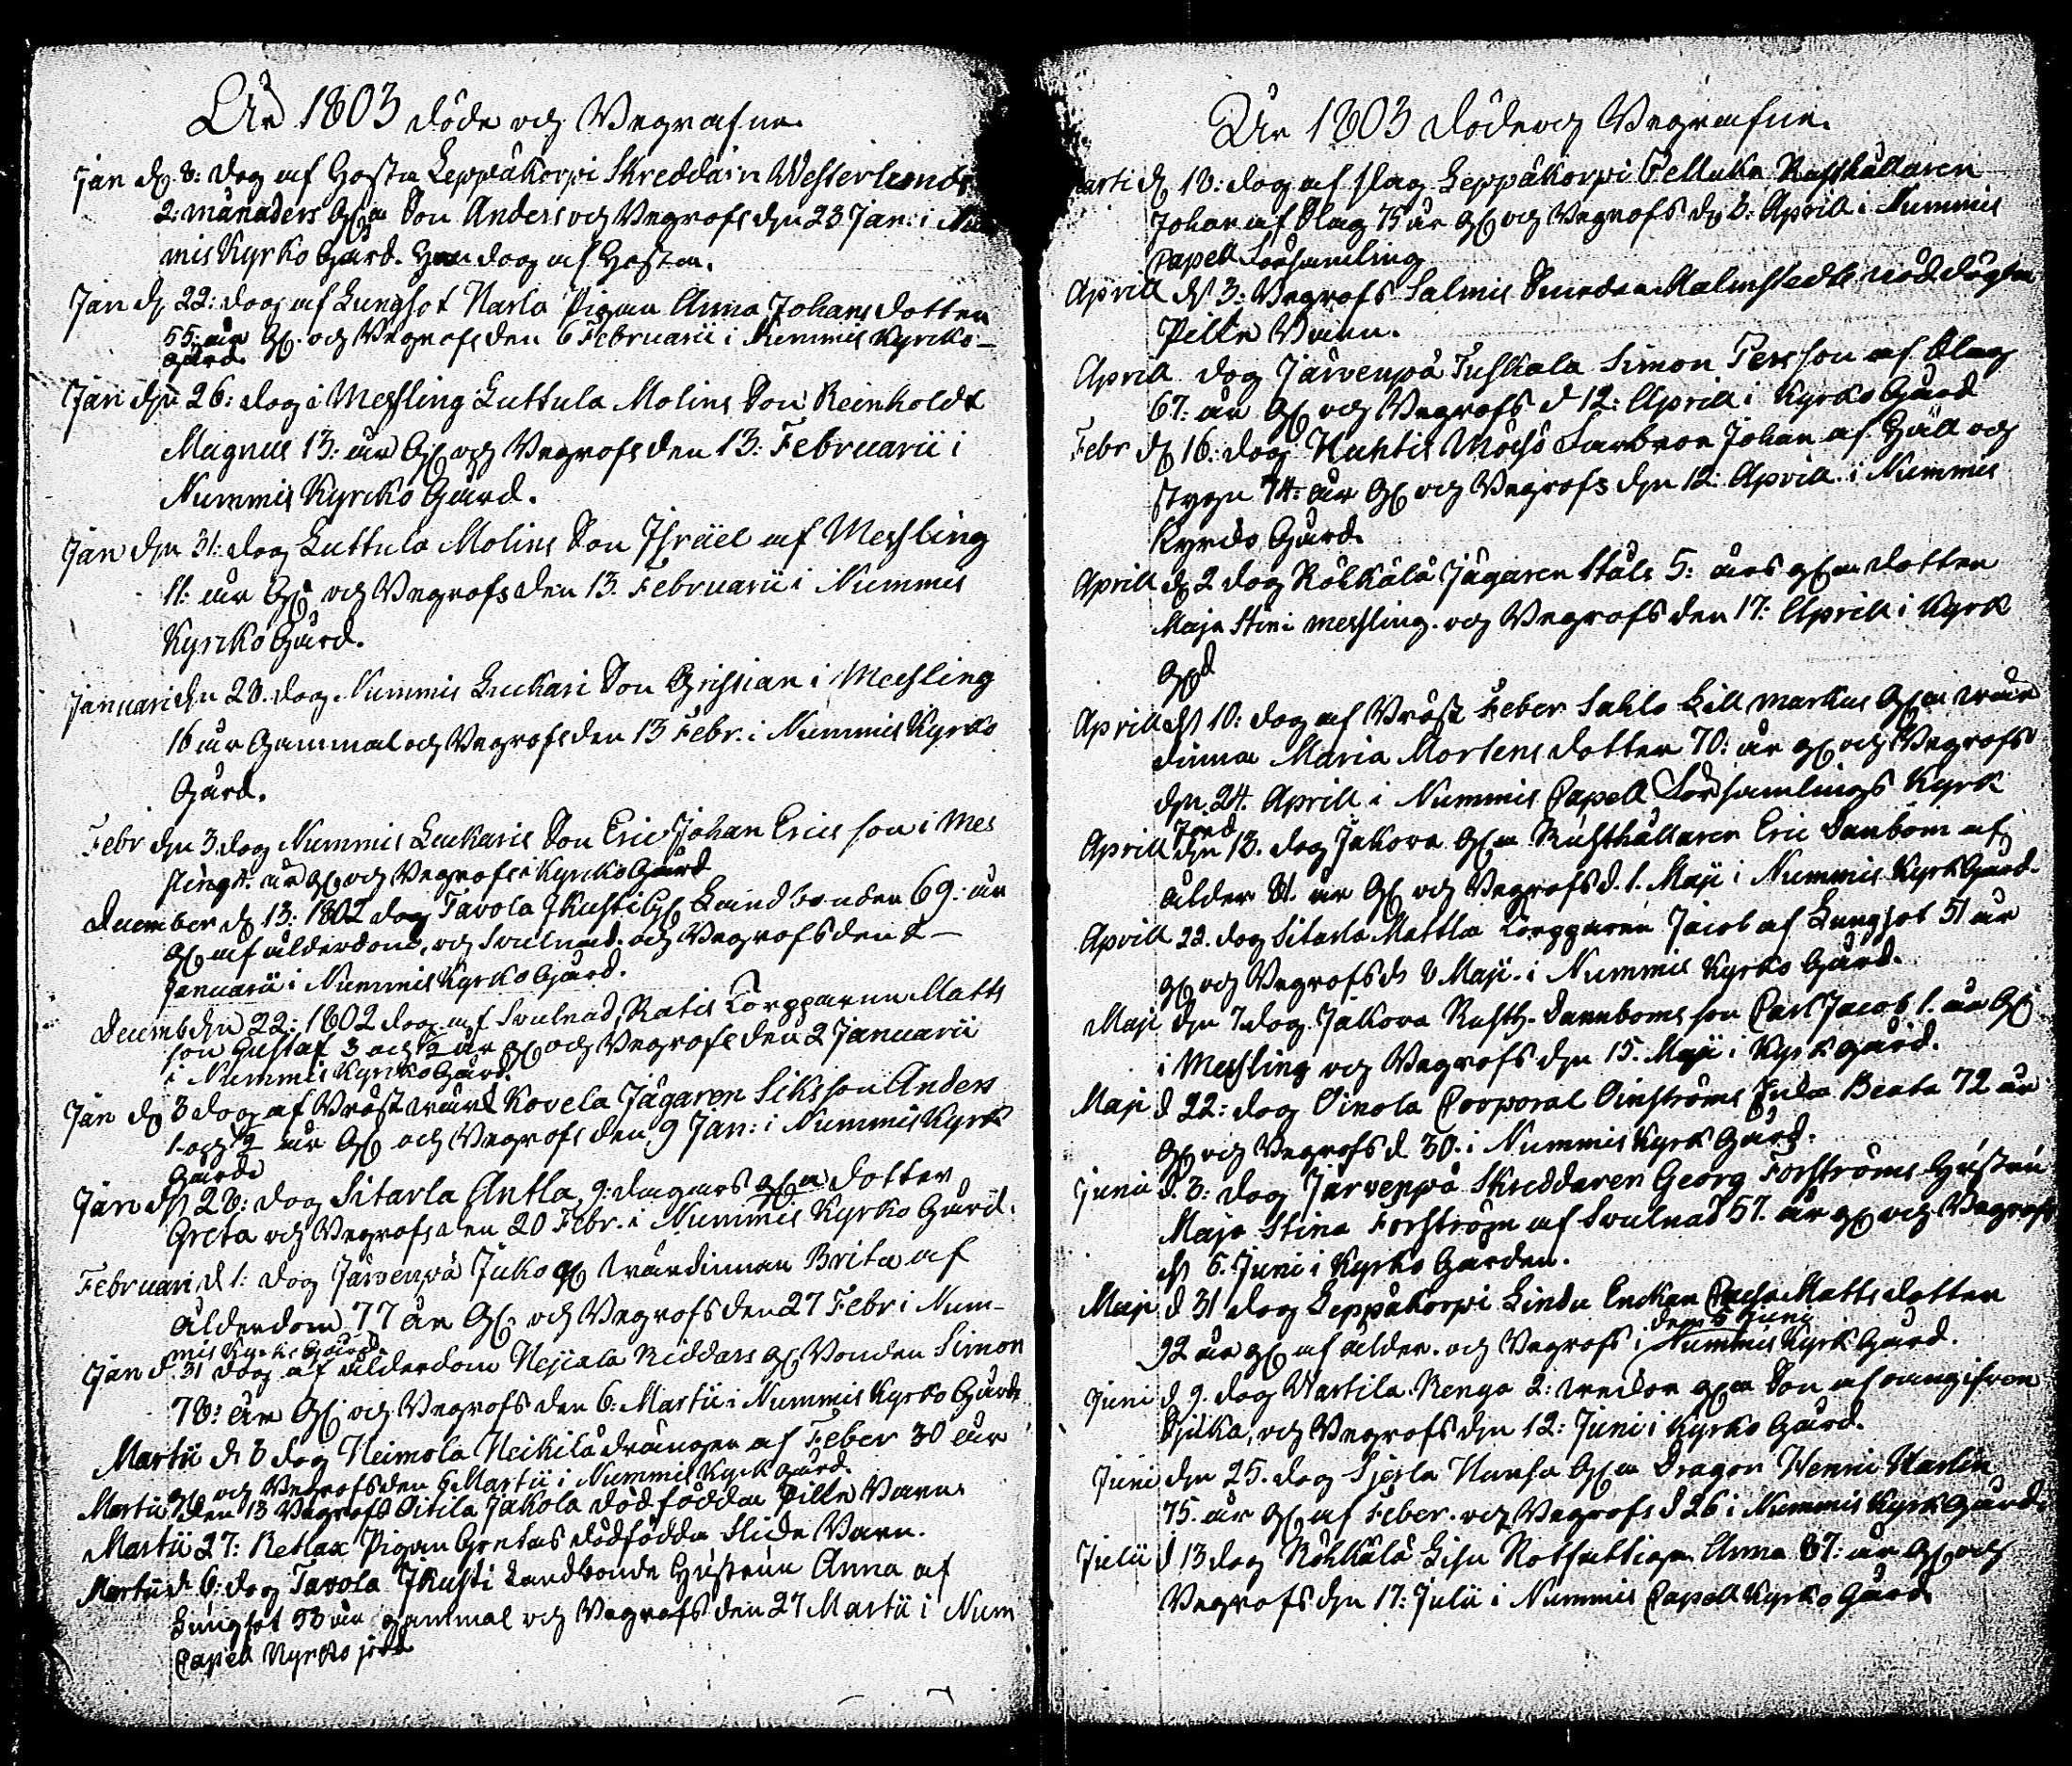 År 1803 döde och Begrafne.
Jan d. 8: dog af Hosta Leppäkorpi Skreddarn Westerlunds
2: månaders Gl:a Son Anders och Begrofs den 23 Jan: i Num
mis Kyrko Gård. Han dog af Hosta.
Jan d. 22: dog af Lungsot Narla Pigan Anna Johans dotter
55: år Gl. och Begrofs den 6 Februarii i Nummis Kyrcko-
Gård.
Jan den 26: dog i Messling Luttula Molins Son Reinholdt
Magnus 13: år Gl och Begrofs den 13: Februarii i
Nummis Kyrcko Gård.
Jan den 31: dog Luttula Molins Son Israel af Messling
11: år Gl: och Begrofs den 13. Februarii i Nummis
Kyrcko Gård.
Januari den 28. dog Nummis Luckari Son Christian i Messling
16 år Gammal och Begrofs den 13 Febr. i Nummis Kyrko
Gård.
Febr den 3 dog Nummis Luckaris Son Eric Johan Erics son i Mes
sling år Gl och Begrofs i Kyrcko Gård
December d. 13: 1802 dog Tavola Jkusti Gl Landbonden 69: år
Gl af ålderdom, och Svulnad. och Begrofs den 2
Januarii i Nummis Kyrko Gård.
Decemb den 22: 1802 dog af Svulnad, Ratis Torpparens Matts
son Gustaf 3 och 1/2 år gl och Begrofs den 2 Januarii
i Nummis Kyrko Gård.
Jan d. 3 dog af Bröstvärk Kovela Jägaren Siks son Anders
1 och 1/2 år Gl och Begrofs den 9 Jan: i Nummis Kyrk
Gård
Jan d 28: dog Sitarla Antla, 9: dagars gl:a dotter
Greta och Begrofs den 20 Febr. i Nummis Kyrko Gård.
Februari d 1: dog Järvenpä Juko gl Värdinnan Brita af
Ålderdom 77 år Gl: och Begrofs den 27 Febr i Num-
mis Kyrko Gård
Jan d. 31 dog af ålderdom Hejiala Riddars gl Bonden Simon
78: år Gl: och Begrofs den 6: Martii i Nummis Kyrko Gård
Martii d 3 dog Heimola Heikilä drängen af Feber 30 år
gl och Begrofs den 6 Martii i Nummis Kyrk Gård.
Martii den 13 Begrofs Oitila Jakola dödfödda Pilte Barn.
Martii 27: Retlax Pigan Gretas dödfödda Flicke Barn.
Martii d. 6: dog Tavola Jkusti Landbonde Hustrun Anna af
Lungsot 53 år gammal och Begrofs den 27 Martii i Num
Capell Kyrko jord
År 1803 döde och Begrafne.
arti d 18: dog af slag Leppäkorpi Pelluka Rusthållaren
Johan af Slag 75 år gl och Begrofs d. 3: Aprill i Nummis
Capell Församling
Aprill d 3: Begrofs Salmis Smeden Malmstedts nöddöpta
Pilte Barn.
Aprill dog Järvenpä Tuskala Simon Persson af Slag
67: år Gl och Begrofs d 12: Aprill i Kyrko Gård
Febr d 16: dog Huhtis Mörsö Farbror Johan af Håll och
styng 74: år Gl och Begrofs den 12: Aprill. i Nummis
Kyrcko Gård.
Aprill d. 2 dog Röhkälä Jägaren Ståls 5: års gl:a dotter
Maja Stin i messling. och Begrofs den 17: Aprill i Kyrk
Gd
Aprill d 10: dog af Bröst Feber Sahlo Lill markus Gl:a vär
dinna Maria Mortens dotter 70: år gl och Begrofs
den 24. Aprill i Nummis Capell Församlings Kyrk
jord
Aprill den 13. dog Jakova gl:a Rusthållaren Eric Danbom af
ålder 81. år Gl och Begrofs d. 1. Maji i Nummis Kyrk Gård.
Aprill 22. dog Sitarla Mattla Torpparen Jacob af Lungsot 51 år
gl och Begrofs d 8 Maji. i Nummis Kyrko Gård.
Maji den 7 dog. Jakova Rusth. Dannboms son Carl Jacob 1. år Gl
i Messling och Begrofs den 15. Maji i Kyrk gård.
Maji d 22: dog Oinola Corporal Oinströms Enka Beata 72 år
gl och Begrofs d 30. i Nummis Kyrk Gård.
Junii d. 3: dog Järvenpä Skreddaren Georg Forströms Hustru
Maja Stina Forström af Svulnad 57. år gl och Begrofs
d 6. Juni i Kyrko Gården.
Maji d 31 dog Leppäkorpi Lindu Enckan Matts dotter
den 5 Junii
92 år gl af ålder. och Begrofs i Nummis Kyrk Gård.
Juni d 9. dog Wartila Renga 2: gl:a Son af
Sjuka, och Begrofs den 12: Juni i Kyrko Gård.
Juni den 25. dog Sjerla Hansa Gl:a Dragon Henric Karlin
75. år gl af Feber. och Begrofs d 26 i Nummis Kyrk Gård.
Julii d 13 dog Röhkälä Lisu Rotfattiga Anna 87: år Gl och
Begrofs den 17: Julii i Nummis Capell Kyrko Gård